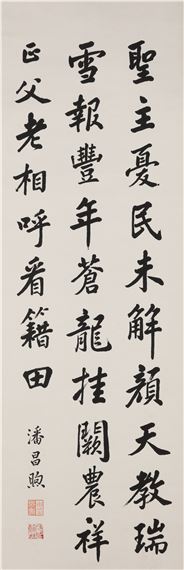 聖主憂民未解顏天教瑞
雪報豐年蒼龍挂闕農祥
正父老相呼看籍田
潘昌煦